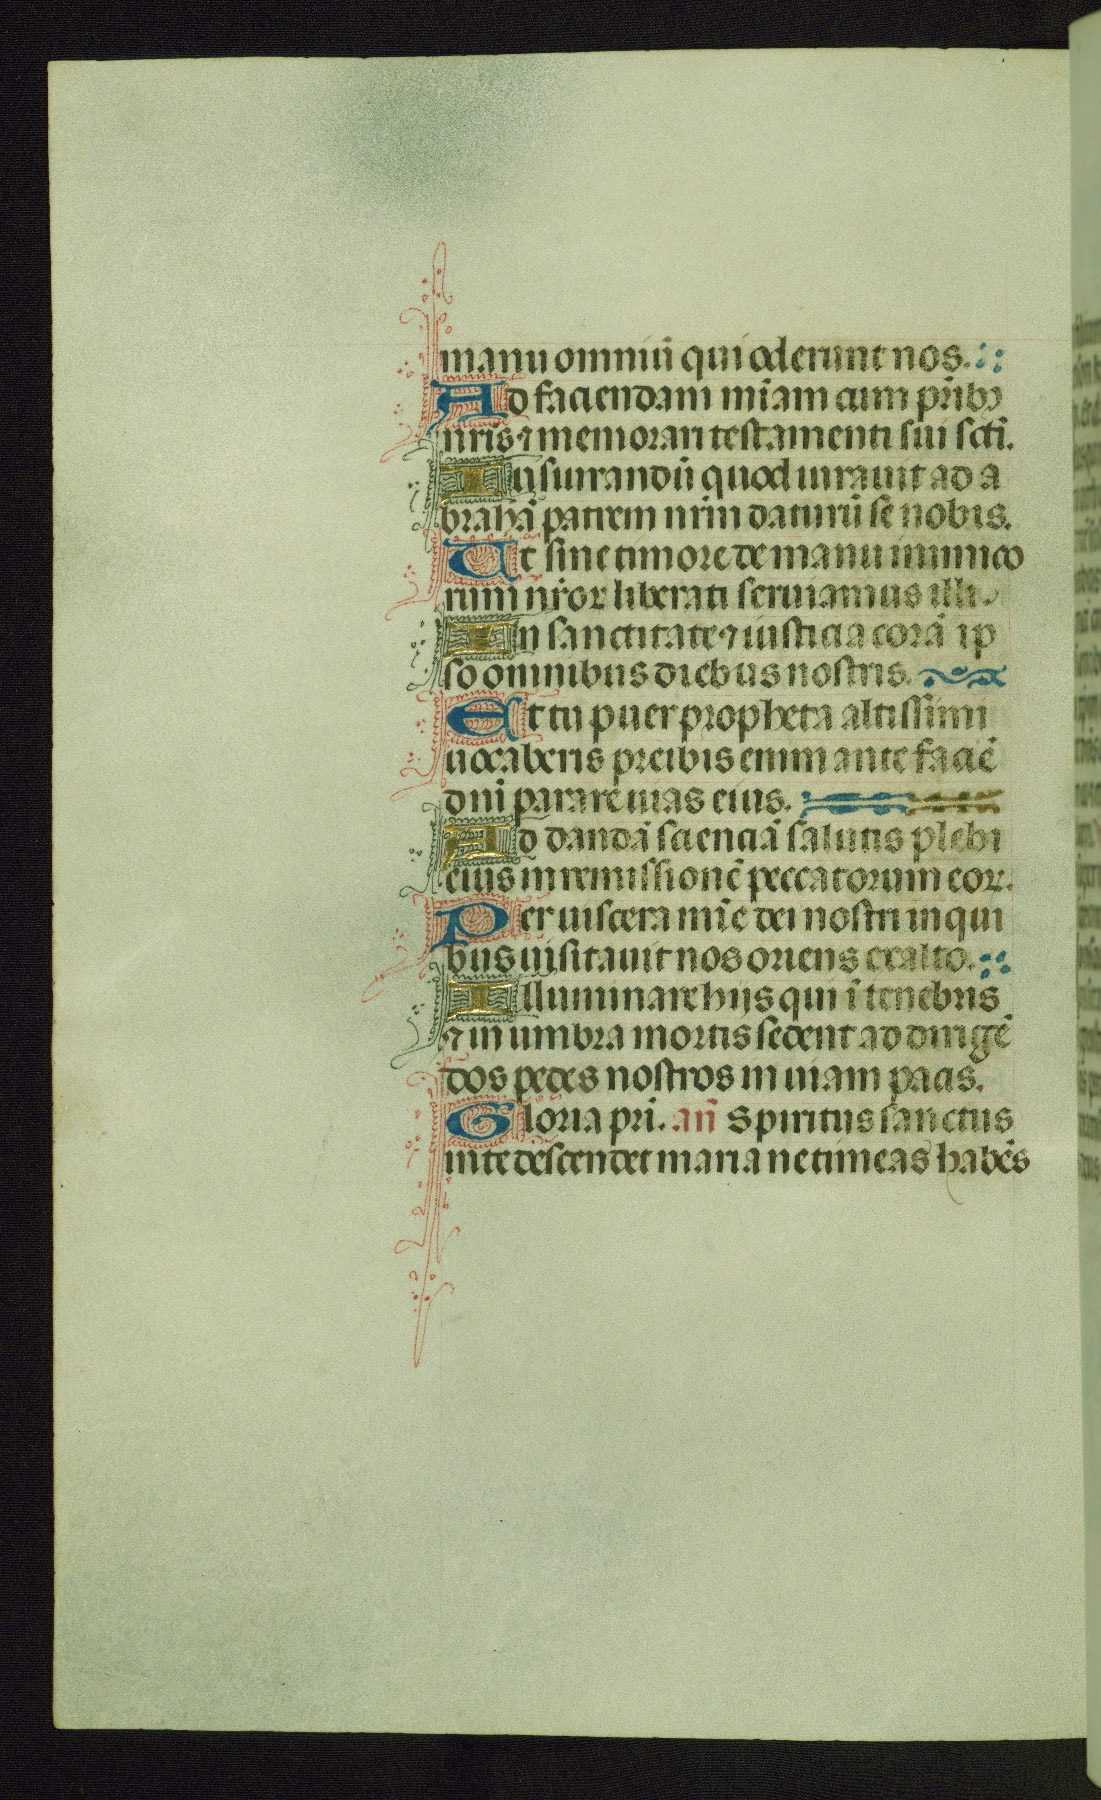 manu omniū qui oderunt nos.
Ad faciendam mīam cum pr̄ibꝫ
nr̄is ⁊ memorari testamenti sui scti.
Iusiurandū quod iurauit ad a
brahā patrem nr̄m daturū se nobis.
Ut sine timore de manu inimico
rum nr̄oꝝ liberati seruiamus illi.
In sanctitate ⁊ iusticia corā ip
so omnibus diebus nostris.
Et tu puer propheta altissimi
uocaberis preibis enim ante faciē
dn̄i parare uias eius.
Ad dandā scienciā salutis plebi
eius in remissionē peccatorum eoꝝ.
Per uiscera mīe dei nostri in qui
bus uisitauit nos oriens exalto.
Illuminare hijs qui ī tenebris
⁊ in umbra mortis sedent ad dirigē
dos pedes nostros in uiam pacis.
Gloria pr̄i. an̄ Spiritus sanctus
in te descendet maria ne timeas habēs